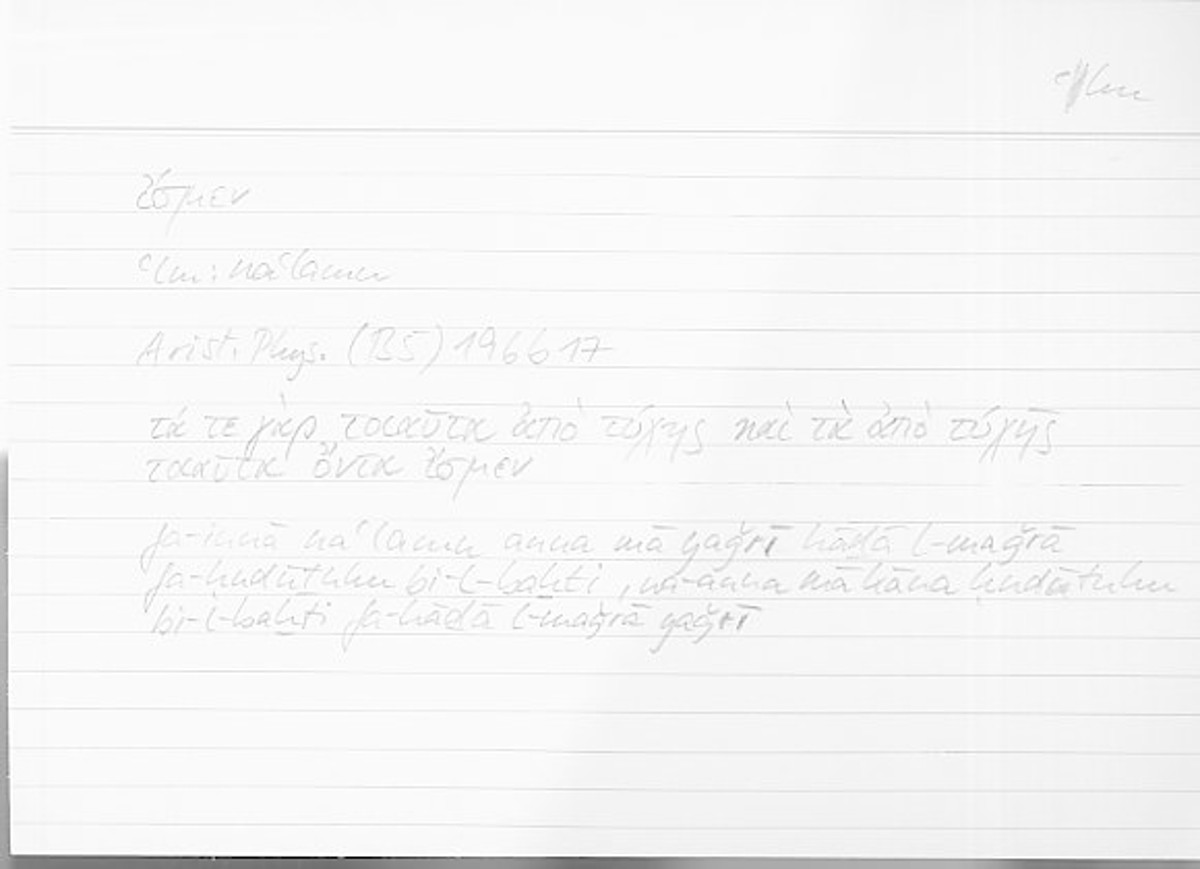 ʿlm
ἴσμεν
ʿlm: naʿlamu
Arist. Phys. (B5) 196b17
τά τε γὰρ τοιαῦτα ἀπὸ τύχης καὶ τὰ ἀπὸ τύχης
τοιαῦτα ὄντα ἴσμεν
fa-innā naʿlamu anna mā yaǧrī hāḏā l-maǧrā
fa-ḥudūṯuhu bi-l-baḫti, wa-anna mā kāna ḥudūṯuhu
bi-l-baḫti fa-hāḏā l-maǧrā yaǧrī